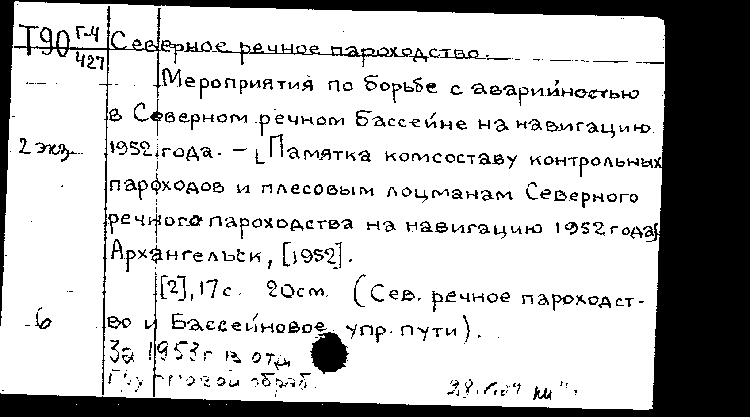 Т90 Г-4/427 Северное речное пароходство.
Мероприятия по борьбе с аварийностью
в Северном речном бассейне на навигацию
2 экз. 1952 года. – [Памятка комсоставу контрольных
пароходов и плесовым лоцманам Северного
речного пароходства на навигацию 1952 года].
Архангельск, [1952].
[2], 17 с. 20 см. (Сев. речное пароходст-
6 во и Бассейновое упр. пути).
За 1953 г в отд
групповой обраб.